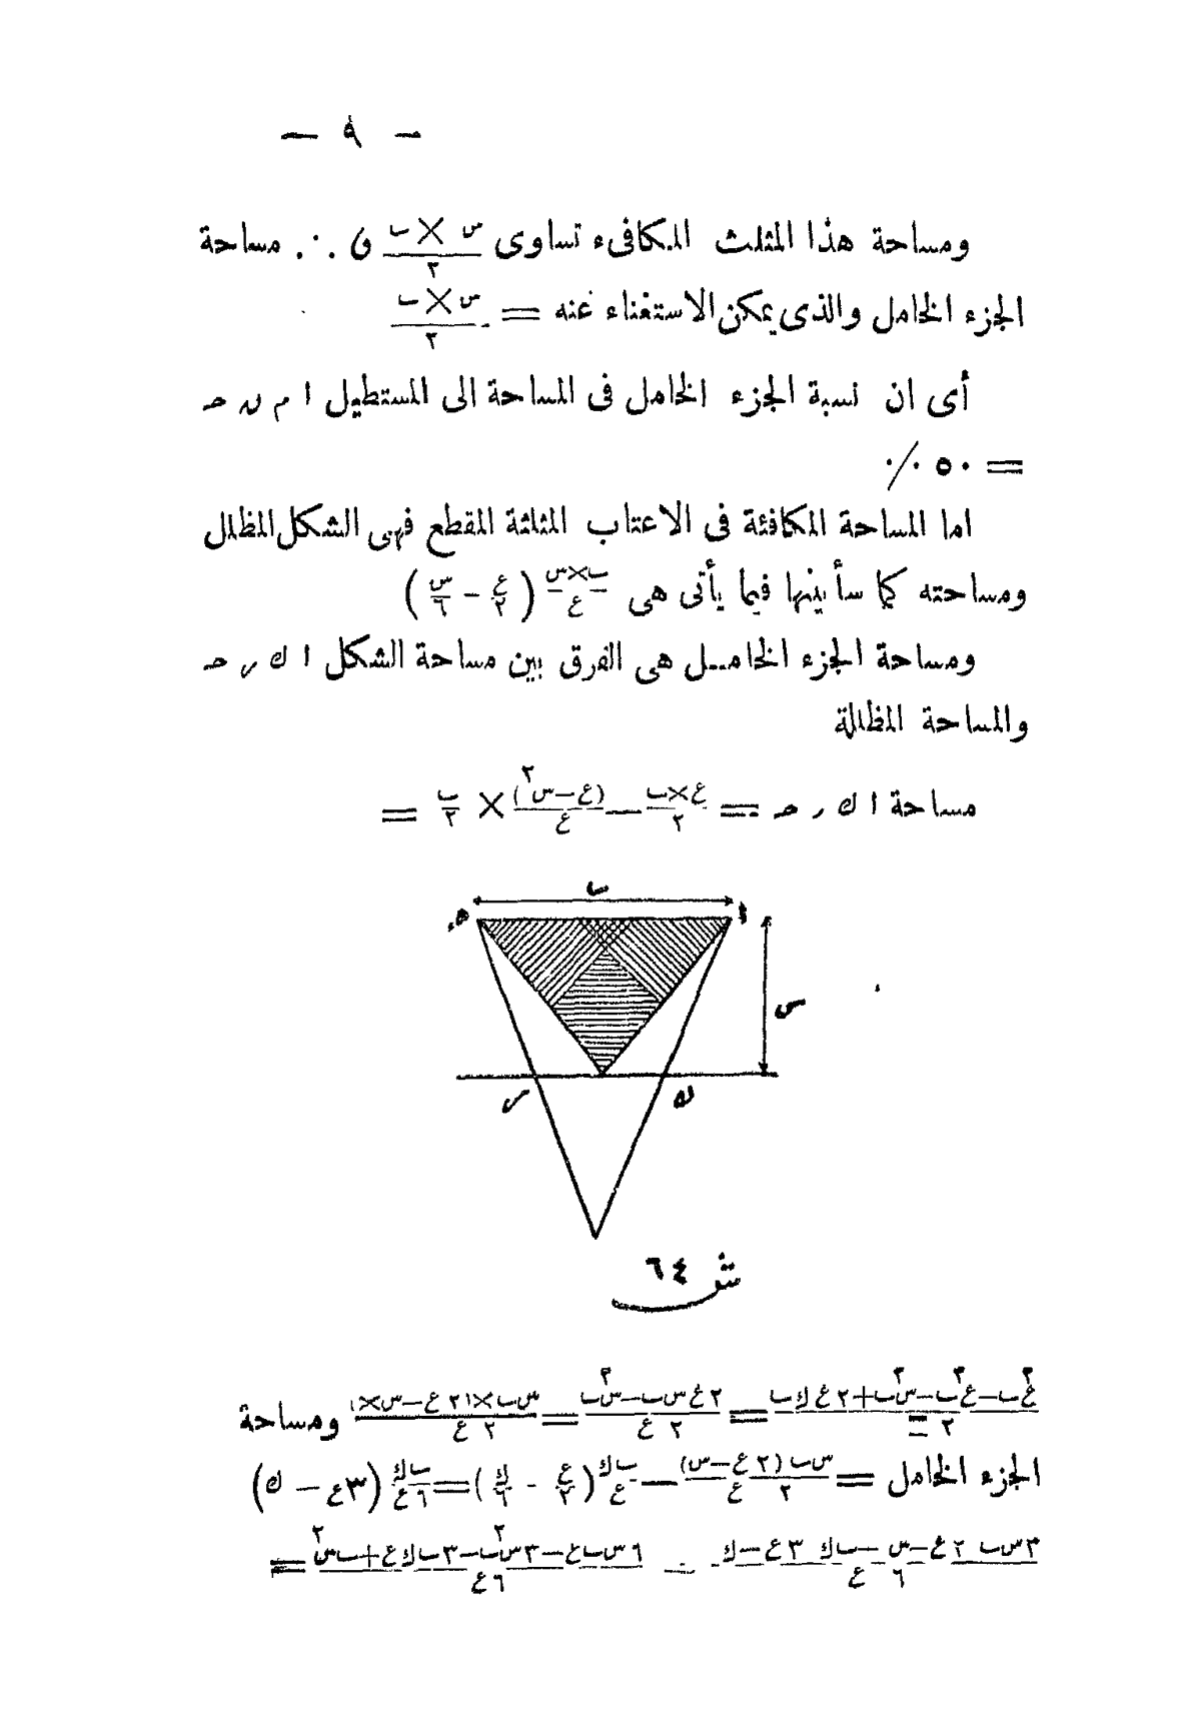 — ٩ —
ومساحة هذا المثلث المكافىء تساوى س × ب / ٢ ∴ مساحة
الجزء الخامل والذى يمكن الاستغناء عنه = س × ب / ٢
أى ان نسبة الجزء الخامل فى المساحة الى المستطيل ا م ن حـ
= ٥٠ ٪
اما المساحة المكافئة فى الاعتاب المثلثة المقطع فهى الشكل المظلل
ومساحته كما سأبينها فيما يأتى هى ب×س / ع (ع / ٢ − س / ٦)
ومساحة الجزء الخامـل هى الفرق بين مساحة الشكل ا ك ر حـ
والمساحة المظللة
مساحة ا ك ر حـ = ع×ب / ٢ − (ع−س)٢ / ع × ب / ٢ =
ب
ا
حـ
س
ر
ك
ش ٦٤
ع٢ب−ع٢ب−س٢ب+٢ع ك ب / ٢ع = ٢ع س ب−س٢ب / ٢ع = س ب×(٢ع−س) / ٢ع ومساحة
الجزء الخامل = س ب (٢ع−س) / ٢ع − ب ك / ع (ع / ٢ − ك / ٦) = ب ك / ٦ع (٣ع − ك)
٣س ب ٢ع−س −ب ك ٣ع−ك / ٦ع = ٦س ب ع−٣س٢ب−٣ب ك ع+ب س٢ / ٦ع =